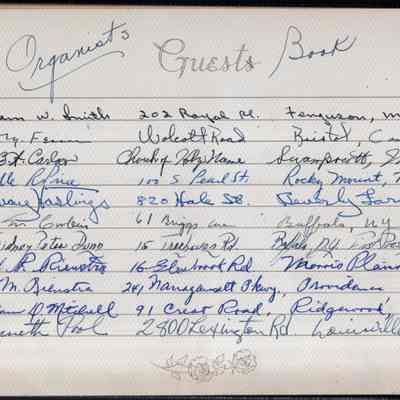 Organists Guests Book
W. Smith 202 Royal Pl. Ferguson, M
Wolcott Road Bristol, C
Church of Holy Name Swampscott,
Price 100 S. Pearl St. Rocky Mount, N
Hastings 820 Hale St. Beverly Far
61 Briggs Ave Buffalo, N.Y.
15 Rd Buffalo, N.Y.
Rienstra 16 Glenbrook Rd Morris Plain
M. Rienstra 241 Narragansett Pkwy, Providence
D. Mitchell 91 Crest Road, Ridgewood,
nneth Pool 2800 Lexington Rd Louisville